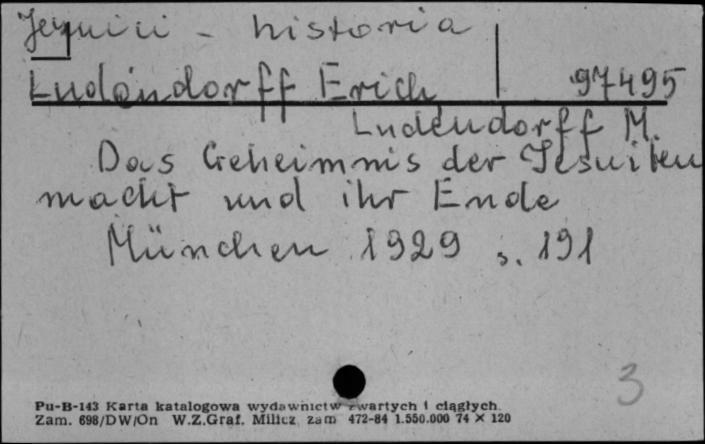 Jezuici - historia
Ludendorff Erich 97495
Ludendorff M.
Das Geheimnis der Jesuiten
macht und ihr Ende
München 1929 s. 191
3
Pu-B-143 Karta katalogowa wydawnictw zwartych i ciągłych.
Zam. 698/DW/On W.Z.Graf. Milicz zam 472-84 1.550.000 74 × 120